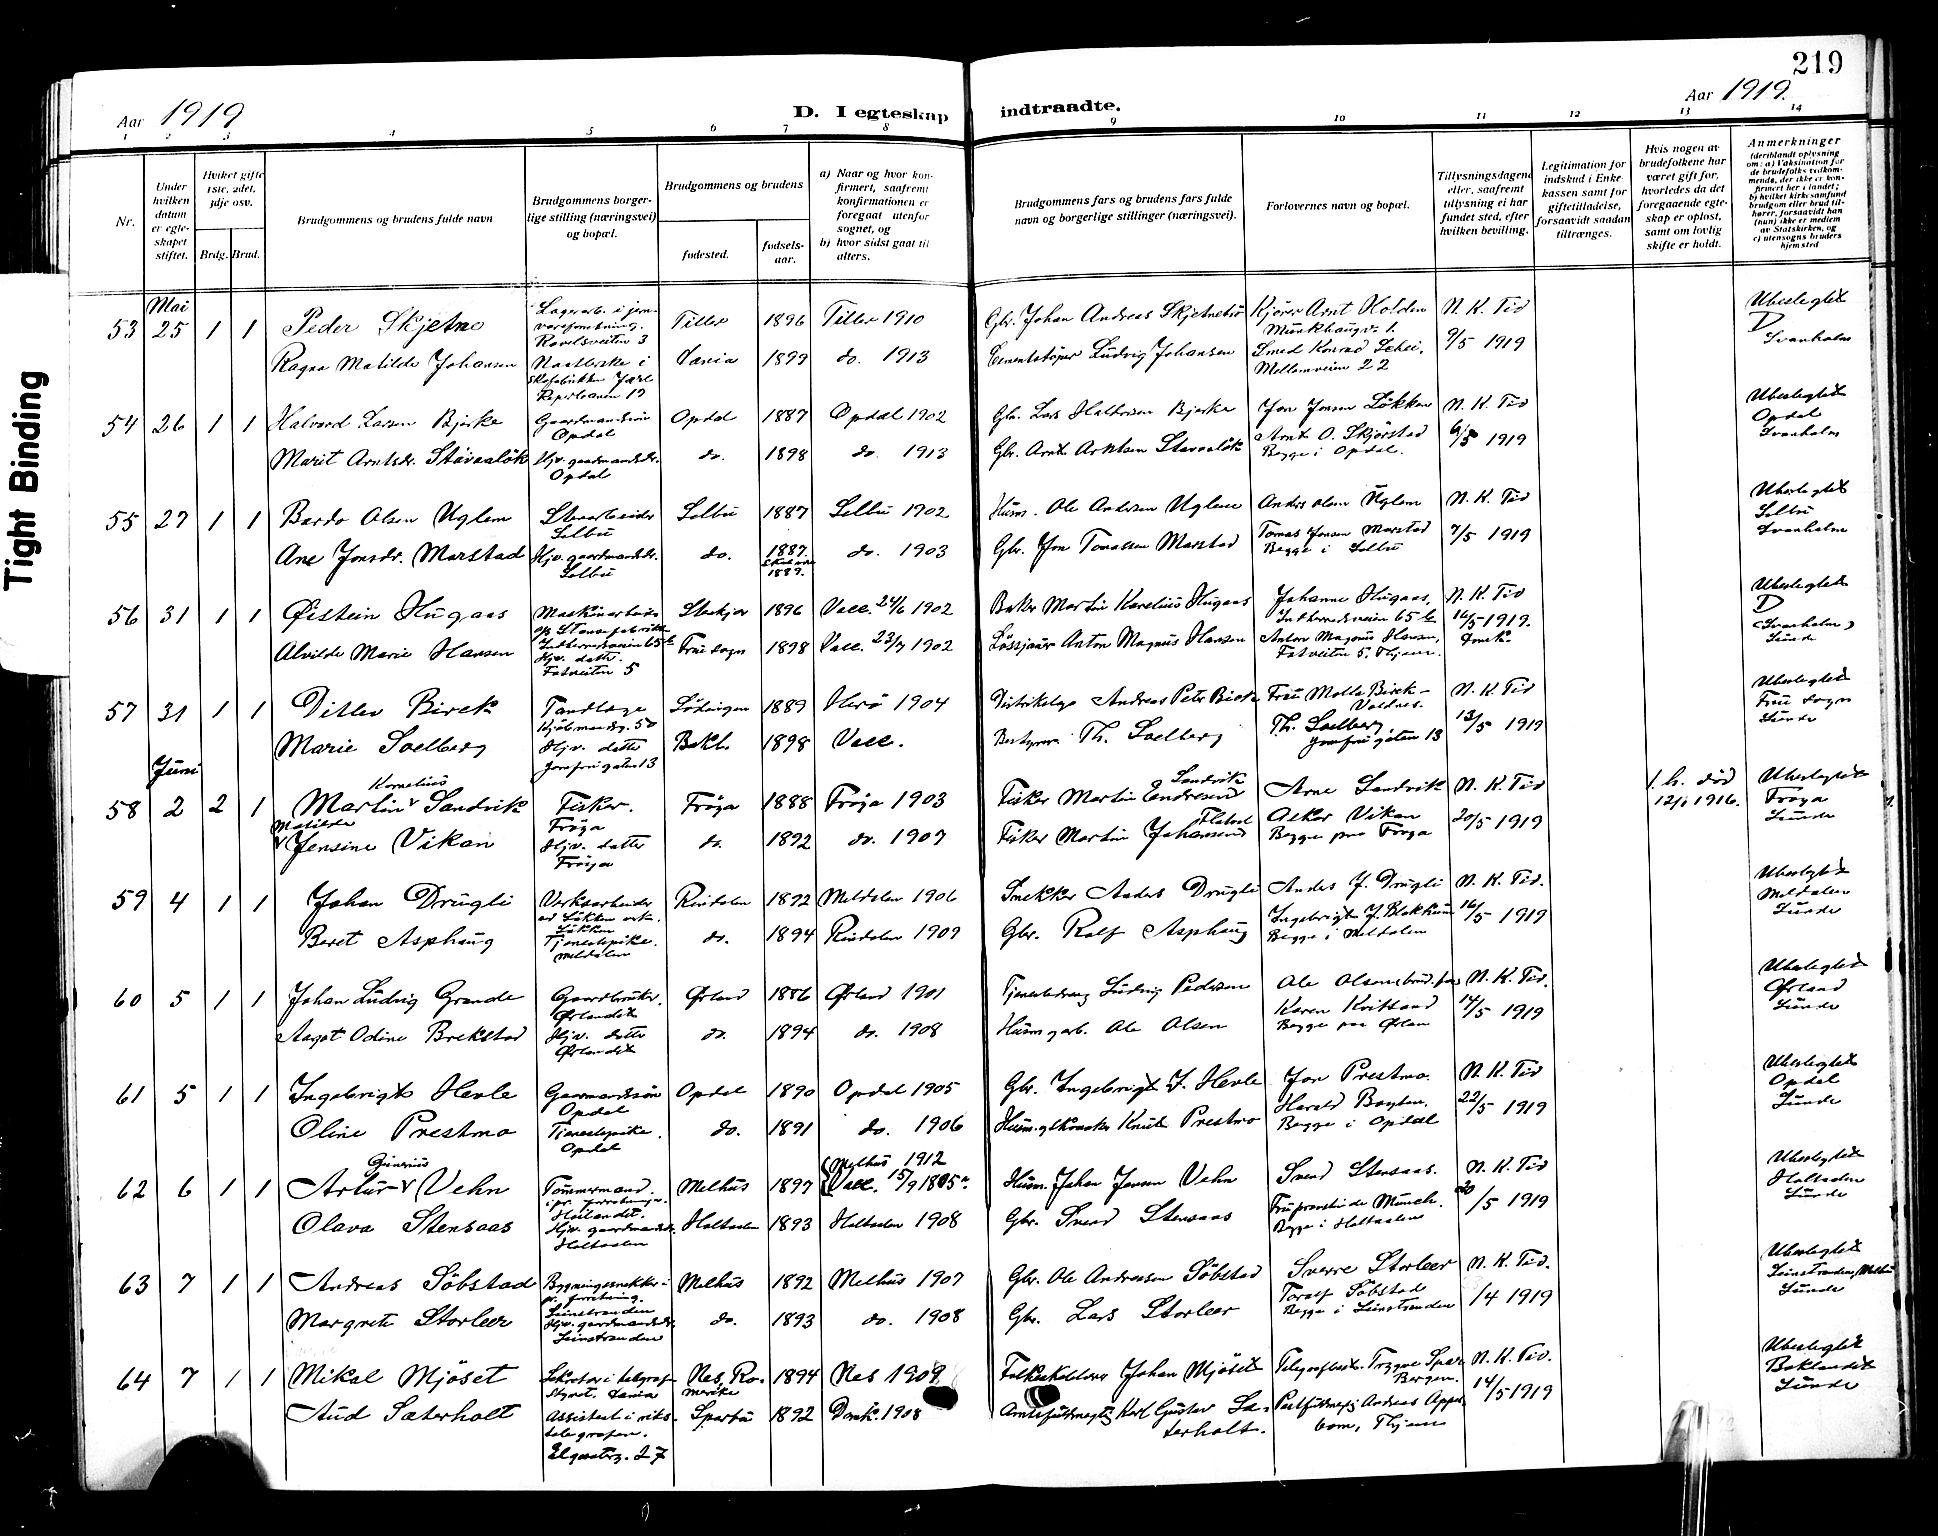 219
Aar 1919
D. I egteskap indtraadte.
Aar 1919.
1 2 3 4 5 6 7 8 9 10 11 12 13 14
Nr.
Under hvilken datum er egteskapet stiftet.
Hvilket gifte 1ste, 2det, 3dje osv.
Brdg. Brud.
Brudgommens og brudens fulde navn
Brudgommens borgerlige stilling (næringsvei) og bopæl.
Brudgommens og brudens
fødested.
fødselsaar.
a) Naar og hvor konfirmert, saafremt konfirmationen er foregaat utenfor sognet, og
b) hvor sidst gaat til alters.
Brudgommens fars og brudens fars fulde navn og borgerlige stillinger (næringsvei).
Forlovernes navn og bopæl.
Tillysningsdagene eller, saafremt tillysning ei har fundet sted, efter hvilken bevilling.
Legitimation for indskud i Enkekassen samt for giftetilladelse, forsaavidt saadan tiltrænges.
Hvis nogen av brudefolkene har været gift før, hvorledes da det foregaaende egteskap er opløst, samt om lovlig skifte er holdt.
Anmerkninger (deriblandt oplysning om: a) Vaksination for de brudefolks vedkommende, der ikke er konfirmert her i landet; b) hvilket kirkesamfund brudgom eller brud tilhører, forsaavidt han (hun) ikke er medlem av Statskirken, og c) utensogns bruders hjemsted
Mai
53 25 1 1 Peder Skjetne
Lagerarb. i jernvareforretning. 3
Tiller 1896 Tiller 1910
Gbr. Johan Andreas Skjetnebø
Kjører Arnt Holden
Munkhaugv. 1.
N. K. Tid
9/5 1919
Ubeslegtet
D
Svanholm
Ragna Matilde Johansen
Skofabrikken Jarl
Reperbanen 19
Vania 1899 do. 1913
Cementstøper Ludvig Johansen
Smed Konrad Schei,
Mellemveien 22
54 26 1 1 Halvord Larsen Bjerke
Gaardmandssøn
Opdal
Opdal 1887 Opdal 1902
Gbr. Lars Halvorsen Bjerke
Jon Jonsen Løkken
N. K. Tid
1919
Ubeslegtet
Opdal
Svanholm
Marit Arntsdr. Stavaaløk
Hjv. gaardmandsdr.
Opdal
do. 1898 do. 1913
Gbr. Arnt Arntsen Stavaaløk
Arnt O. Skjørstad
Begge i Opdal.
55 27 1 1 Bardo Olsen Uglem
Stenarbeider
Selbu
Selbu 1887 Selbu 1902
Husm. Ole Andersen Uglem
Anders Olsen Uglem
N. K. Tid
7/5 1919
Ubeslegtet
Selbu
Svanholm
Ane Jonsdr. Marstad
Hjv. gaardmandsdr.
Selbu
do. 1887. skal være 1889. do. 1903
Gbr. Jon Tomassen Marstad
Tomas Jensen Marstad
Begge i Selbu
56 31 1 1 Øistein Hugaas
Stenkjer 1896 Vacc. 24/6 1902
Baker Martin Karelius Hugaas
Johanne Hugaas,
N. K. Tid
16/5 1919.
Ubeslegtet
D
(Svanholm)
Sunde
Alvilde Marie Hansen
Hjv. datter.
Fotveiten 5
Frue sogn 1898 Vacc. 23/9 1902
Løssjauer Anton Magnus Hansen
Anton Magnus Hansen,
Fotveiten 5, Thjem.
57 31 1 1 Ditlev Birck
Tandlæge
Kjøbmandsg. 50
Lødingen 1889 Herø 1904
Distriktslæge Andreas Peter Birck
Fru Molla Birck-
Valdres.
N. K. Tid
13/5 1919
Ubeslegtet
Frue Sogn
Sunde
Marie Solberg
Hjv. datter
Jomfrugaten 13
Bakl. 1898 Vacc.
Bestyrer Th. Solberg
Th. Solberg
Jomfrugaten 13
Juni
58 2 2 1 Martin Kornelius Sandvik
Fisker.
Frøya
Frøya 1888 Frøja 1903
Fisker Martin Endresen Sandvik
Arne Sandvik
N. K. Tid
20/5 1919
f. h. død
12/1 1916.
Ubeslegtet
Frøya
Sunde
Matilde Jensine Vikan
Hjv. datter
Frøya
do. 1892 do. 1907
Fisker Martin Johansen Flatval
Oskar Vikan
Begge paa Frøya
59 4 1 1 Johan Drugli
Verksarbeider
ved Løkken verk.
Løkken
Rindalen 1892 Meldalen 1906
Snekker Anders Drugli
Anders J. Drugli
N. K. Tid.
16/5 1919
Ubeslegtet
Meldalen
Sunde
Beret Asphaug
Tjenestepike.
Meldalen
do. 1894 Rindalen 1909
Gbr. Rolf Asphaug
Ingebrigt J. Blokkum
Begge i Meldalen
60 5 1 1 Johan Ludvig Grande
Gaardbruker.
Ørlandet
Ørland 1886 Ørland 1901
Tjenestedreng Ludvig Pedersen
N. K. Tid.
14/5 1919
Ubeslegtet
Ørland
Sunde
Aagot Odine Brekstad
Hjv. datter
Ørlandet
do. 1894 do. 1908
Husm. g. arb. Ole Olsen
Karen Kvitsand
Begge paa Ørlan
61 5 1 1 Ingebrigt Hevle
Gaardmandssøn
Opdal
Opdal 1890 Opdal 1905
Gbr. Ingebrigt J. Hevle
Jon Prestmo.
N. K. Tid
22/5 1919
Ubeslegtet
Opdal
Sunde
Oline Prestmo
Tjenestepike.
Opdal
do. 1891 do. 1906
Husm. Knut Prestmo
Harald
Begge i Opdal
62 6 1 1 Artur Vehn
Tømmermand.
Melhus 1897 Melhus 1912
Vacc. 15/9 1805
Husm. Johan Jensen Vehn
Svend Stensaas.
N. K. Tid
20/5 1919
Ubeslegtet
Holtaalen
Sunde
Olava Stensaas
Hjv. gaardmandsdr.
Holtaalen
Holtaalen 1893 Holtaalen 1908
Gbr. Svend Stensaas
Münch.
Begge i Holtaalen
63 7 1 1 Andreas Søbstad
Bygningssnekker i
pr. forretning.
Leinstranden
Melhus 1892 Melhus 1907
Gbr. Ole Andreasen Søbstad
Sverre Storleer
N. K. Tid.
1/4 1919
Ubeslegtet
Leinstranden, Melhus
Sunde
Margrete Storleer
Hjv. gaardmandsdr.
Leinstranden
do. 1893 do. 1908
Gbr. Lars Storleer
Toralf Søbstad
Begge i Leinstranden
64 7 1 1 Mikal Mjøset
Nes, Romerike 1894 Nes 1909.
Folkeskolelærer Johan Mjøset
Telegrafbest. Trygve
Bergen.
N. K. Tid.
14/5 1919
Ubeslegtet
Baklandet
Sunde
Aud Sæterholt
Assistent i rikstelegrafen.
27
Sparbu 1892 Domk. 1908
Amtsfuldmegtig Karl Gustav Sæterholt.
Postfuldmegtig Andreas Appelbom, Thjem
Tight Binding